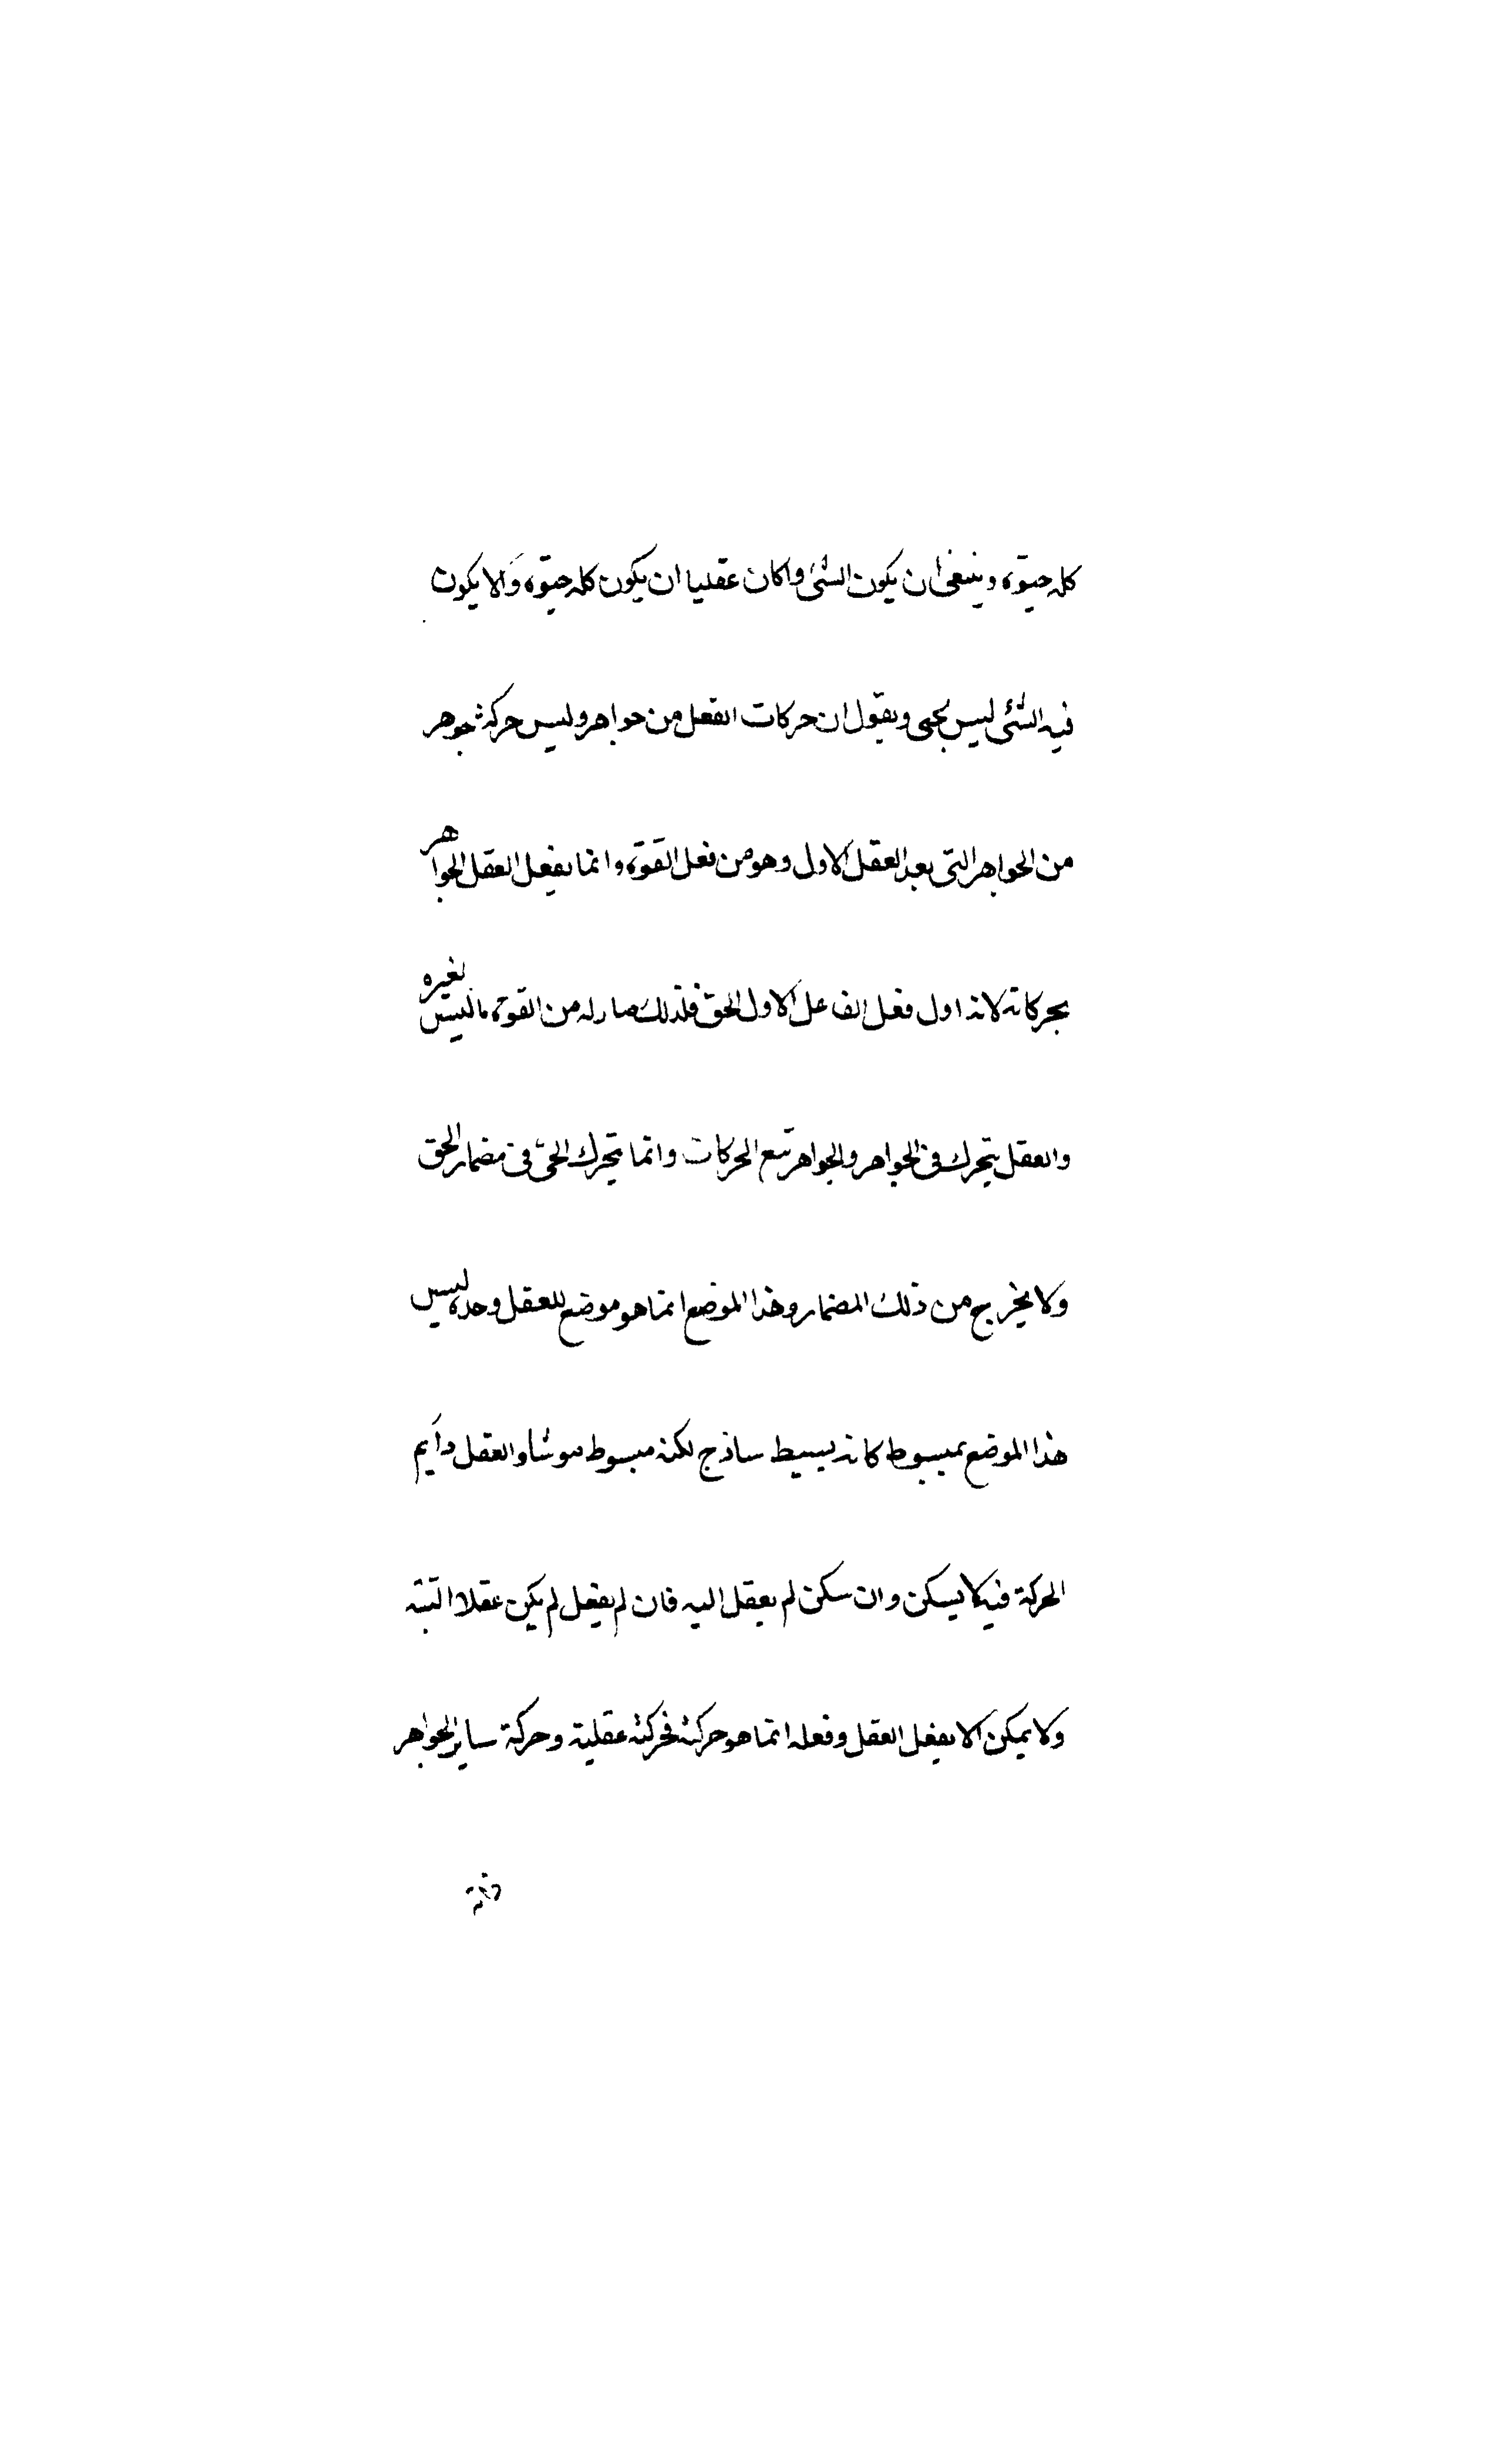 كله حيوة وينبغى ان يكون الشئ واكان عقليا ان يكون كله حيوة والا يكون
فيه الشئ ليس بحى ويقول ان حركات العقل من جواهر وليس حركة جوهر
من الجواهر التى بعد العقل الاول وهو من فعل القوة وانما يفعل العقل الجواهر
بحركاته لانه اول فعل الفاعل الاول الحق فلذلك صار له من القوة ما ليس لغيره
والعقل يتحرك فى الجواهر والجواهر تتبع الحركات وانما يتحرك الحى فى مضمار الحق
ولا يخرج من ذلك المضمار وهذا الموضع انما هو موضع للعقل وحده ليس
هذا الموضع بمبسوط كانه بسيط ساذج لكنه مبسوط موشا والعقل دايم
الحركة فيه لا يسكن وان سكن لم يعقل اليه فان لم يفعل لم يكن عقلا البتة
ولا يمكن الا يفعل العقل وفعله انما هو حركته فحركته عقلية وحركة ساير الجواهر